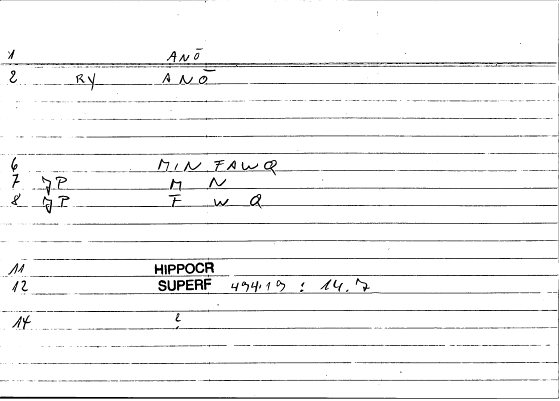 1 ANŌ
2 RY ANŌ
6 MIN FAWQ
7 JP M N
8 JP F W Q
11 HIPPOCR
12 SUPERF 494.19 : 14.7
14 ?